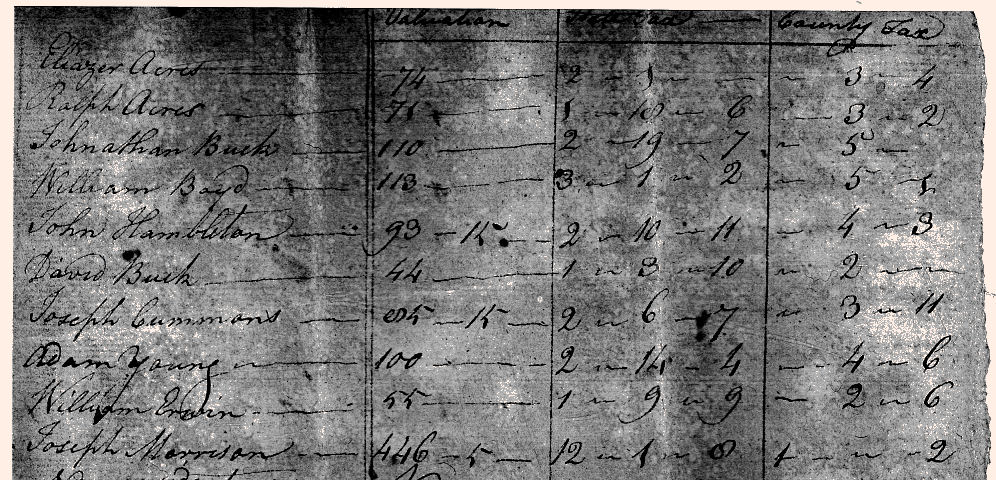 Valuation County Tax
Eliazer Acres 74 2 " 1 " " 3 " 4
Ralph Acres 71 1 " 18 " 6 " 3 " 2
Johnathan Buck 110 2 " 19 " 7 " 5 "
William Boyd 113 3 " 1 " 2 " 5 " 1
John Hambleton 93 - 15 2 " 10 " 11 " 4 " 3
David Buck 44 1 " 3 " 10 " 2 " "
Joseph Cummons 85 - 15 2 " 6 " 7 " 3 " 11
Adam Young 100 2 " 14 " 4 " 4 " 6
William Erwin 55 1 " 9 " 9 " 2 " 6
Joseph Morrison 446 - 5 12 " 1 " 8 1 " " 2